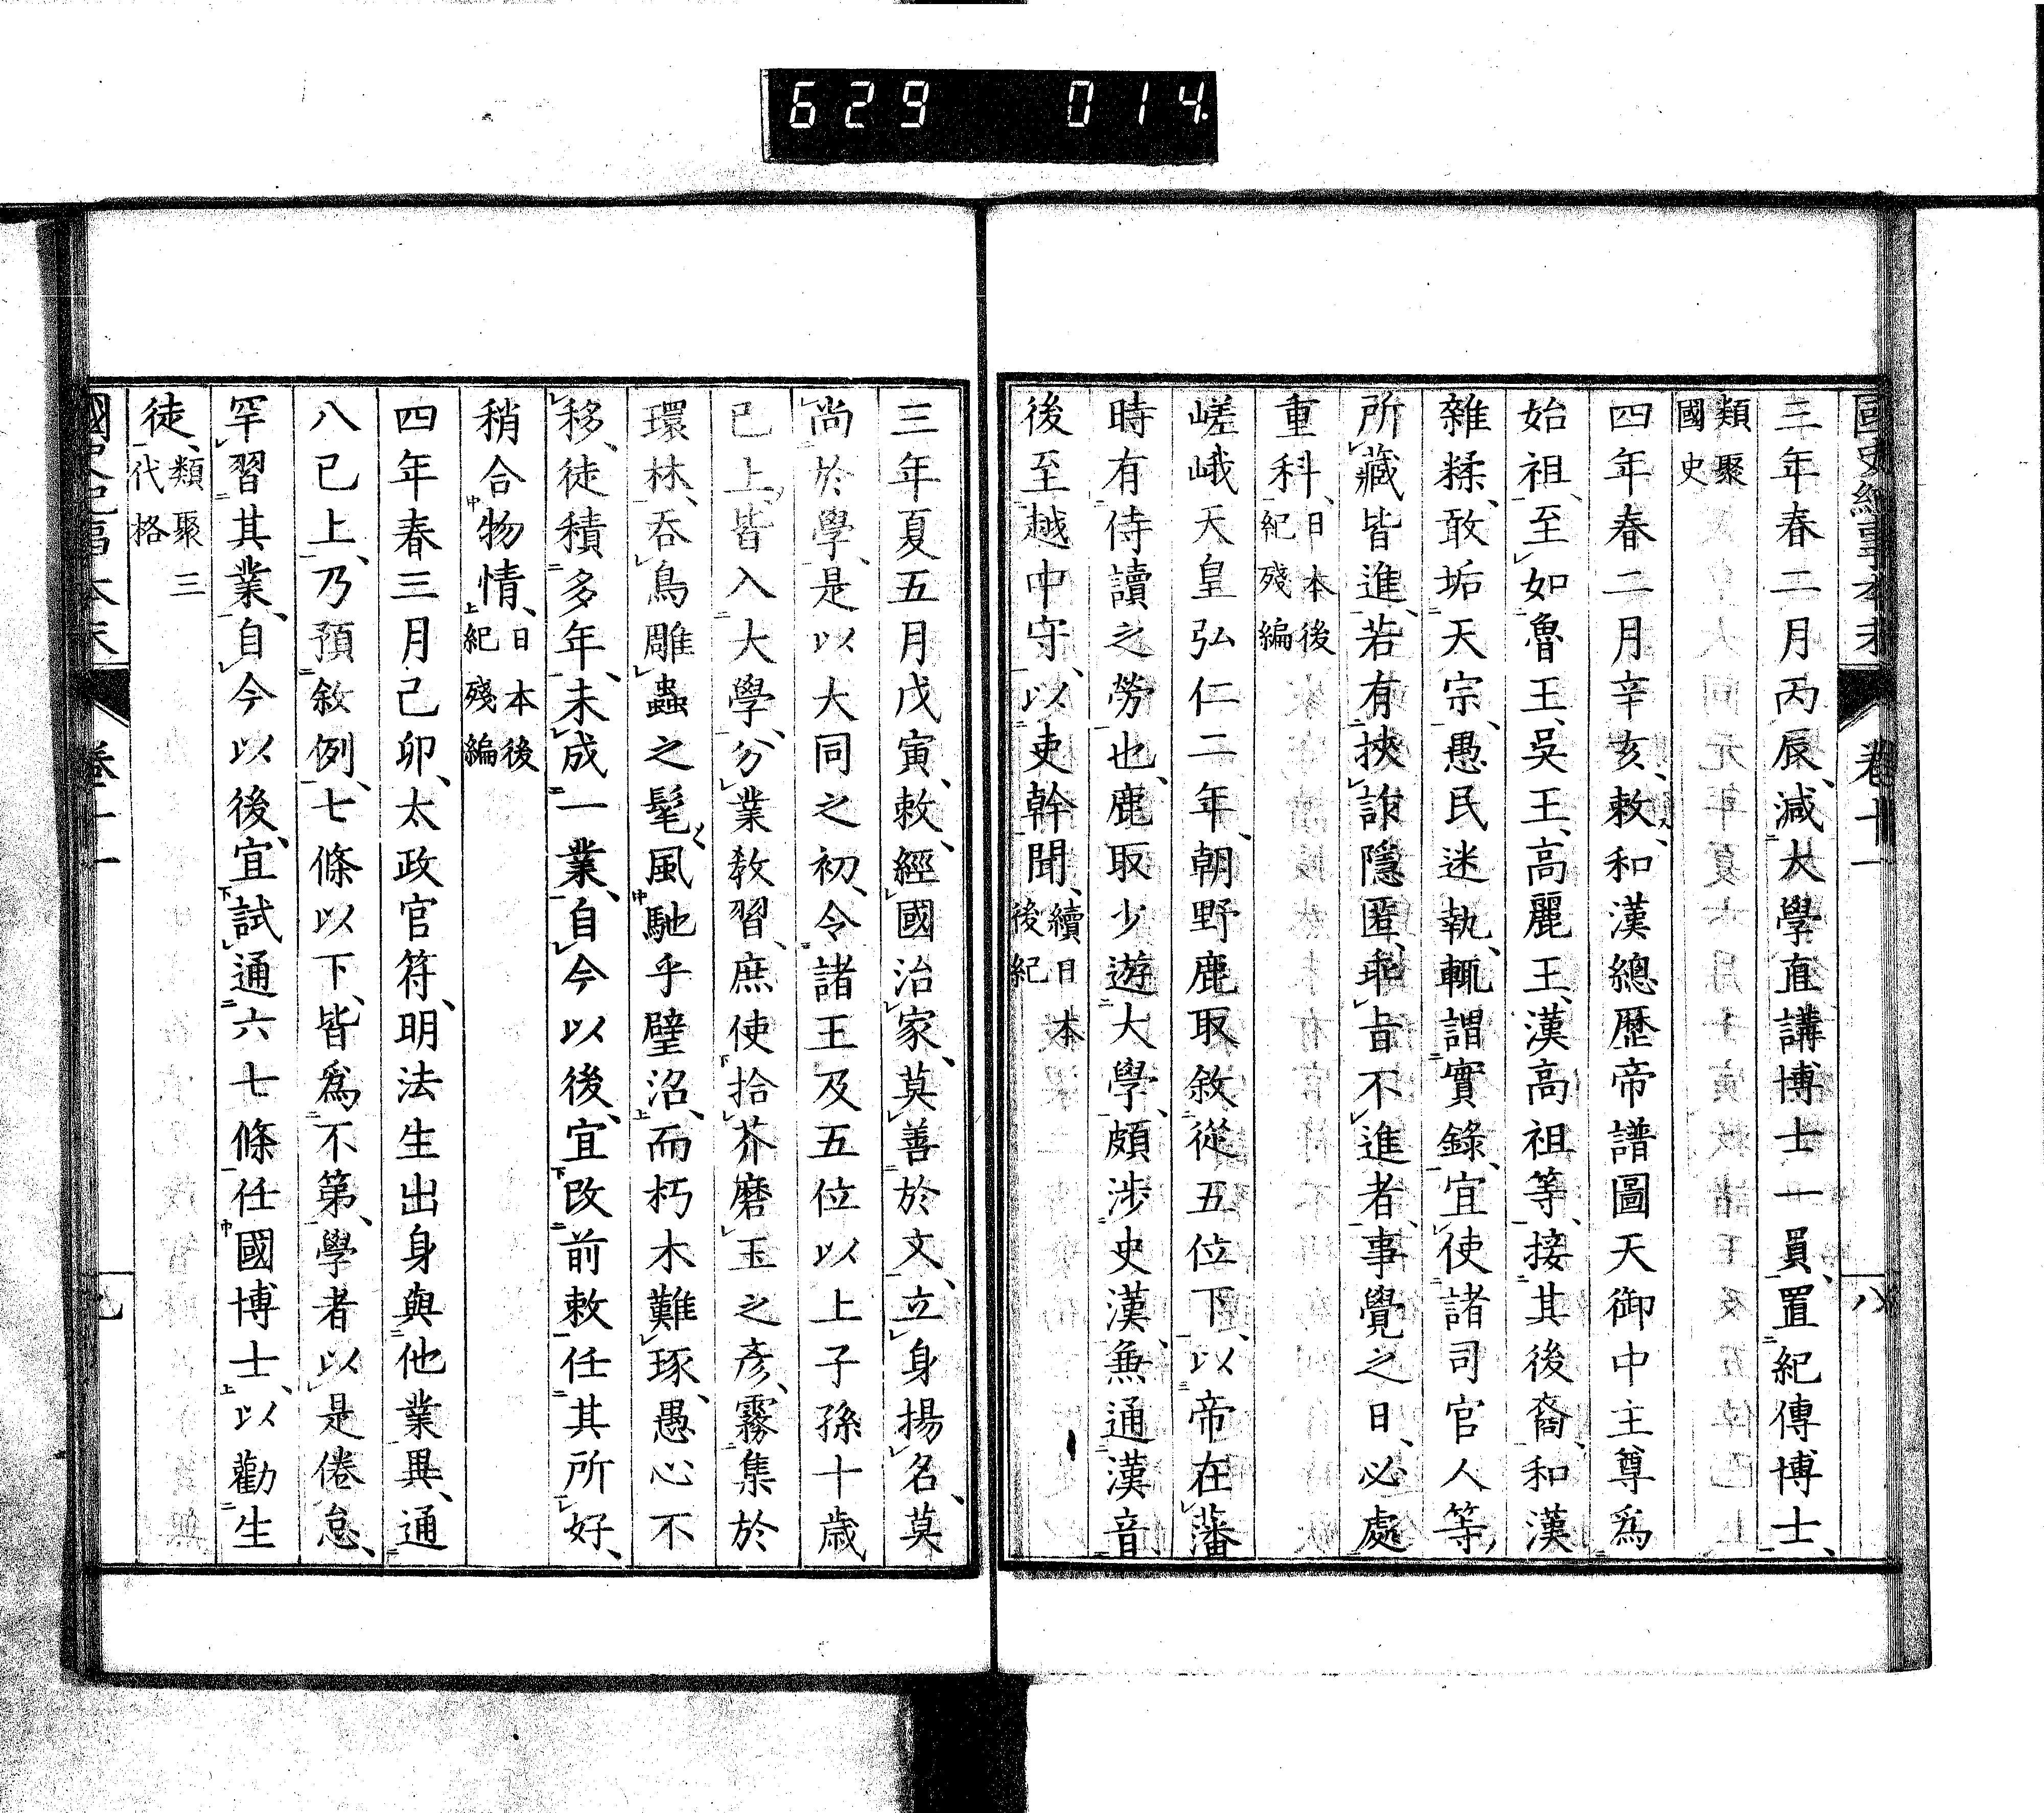 629 014
國史紀事本末 卷十一 八
三年春二月丙辰、減大學直講博士一員、置紀傳博士、
類聚國史
四年春二月辛亥、敕、和漢總歷帝譜圖天御中主尊爲
始祖、至如魯王、吳王、高麗王、漢高祖等、接其後裔、和漢
雜糅、敢垢天宗、愚民迷執、輒謂實錄、宜使諸司官人等、
所藏皆進、若有挾詐隱匿、乖旨不進者、事覺之日、必處
重科、日本後紀殘編
嵯峨天皇弘仁二年、朝野鹿取敘從五位下、以帝在藩
時有侍讀之勞也、鹿取少遊大學、頗涉史漢、兼通漢音、
後至越中守、以吏幹聞、續日本後紀
三年夏五月戊寅、敕、經國治家、莫善於文、立身揚名、莫
尚於學、是以大同之初、令諸王及五位以上子孫十歳
已上、皆入大學、分業教習、庶使拾芥磨玉之彥、霧集於
環林、吞鳥雕蟲之髦、風馳乎璧沼、而朽木難琢、愚心不
移、徒積多年、未成一業、自今以後、宜改前敕任其所好、
稍合物情、日本後紀殘編
四年春三月己卯、太政官符、明法生出身與他業異、通
八已上、乃預敘例、七條以下、皆爲不第、學者以是倦怠、
罕習其業、自今以後、宜試通六七條任國博士、以勸生
徒、類聚三代格
國史紀事本末 卷十一 九